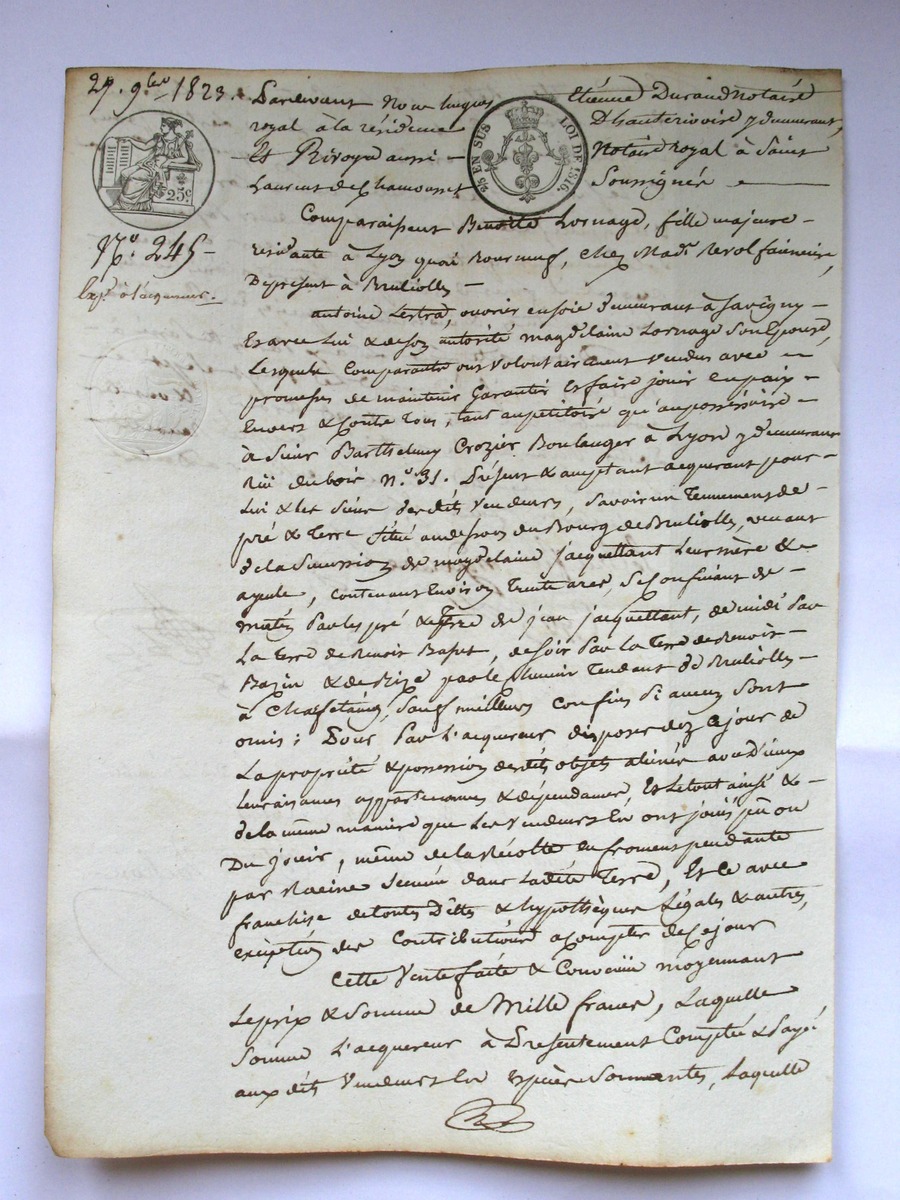 27. 9bre 1823.
Pardevant Nous hugues Etienne Durand Notaire
royal à la résidence D'hauterivoire y demeurant,
Et Rivoyre aussi Notaire royal à Saint
Laurent de Chamousset Soussignés
25c.
25 EN SUS LOI DE 1816.
N.o 245
Exp.e à l'acquereur.
Comparaissent Benoîte Lornage, fille majeure
residante à Lyon quai Bourneuf, chez Mad.e Revol
De present à Brulioles
Antoine Lestra, ouvrier en soie demeurant à Savigny
Et avec lui & de son autorité magdelaine Lornage Son Epouse,
Lesquels Comparants ont Volontairement Vendus avec
promesses de maintenir Garantir Et faire jouir en paix
Envers & Contre Tous, tant au petitoire qu'au possessoire
à Sieur Barthelemy Crozier Boulanger à Lyon y demeurant
Rue du bois N.o 31. Présent & acceptant acquerant pour
Lui & les Siens des dits Vendeurs, Savoir un Tennement de
pré & Terre Situé au dessous du Bourg de Brulioles, venant
de la Succession de magdelaine jacquettant Leur mère &
ayeule, contenant Environ Trente ares, Se Confinant de
matin Par les pré & Terre de jean jacquettant, de midi Par
La Terre de Benoit Basset, de Soir Par la Terre de Benoit
Bazin & de Bize par le Chemin Tendant de Brulioles
à , Sauf meilleurs confins Si aucuns Sont
omis; Pour Par L'acquereur disposer dez Ce jour de
La propriété & possession des dits objets alienés avec D'iceux
Leurs aisances appartenances & dépendances, Et Le tout ainsi &
de la même maniere que Les Vendeurs En ont jouis pû ou
Du jouir, même de la Récolte en froment pendante
par Racine Semée dans La dite Terre, Et Ce avec
franchise de toutes Dettes & hypothèques Légales & autres,
exception des Contributions a Compter de Ce jour
Cette Vente faite & Convenüe moyennant
Le prix & Somme de Mille francs, Laquelle
Somme L'acquereur à Presentement Comptée & Payé
aux dits Vendeurs En Espèces Sonnantes, Laquelle